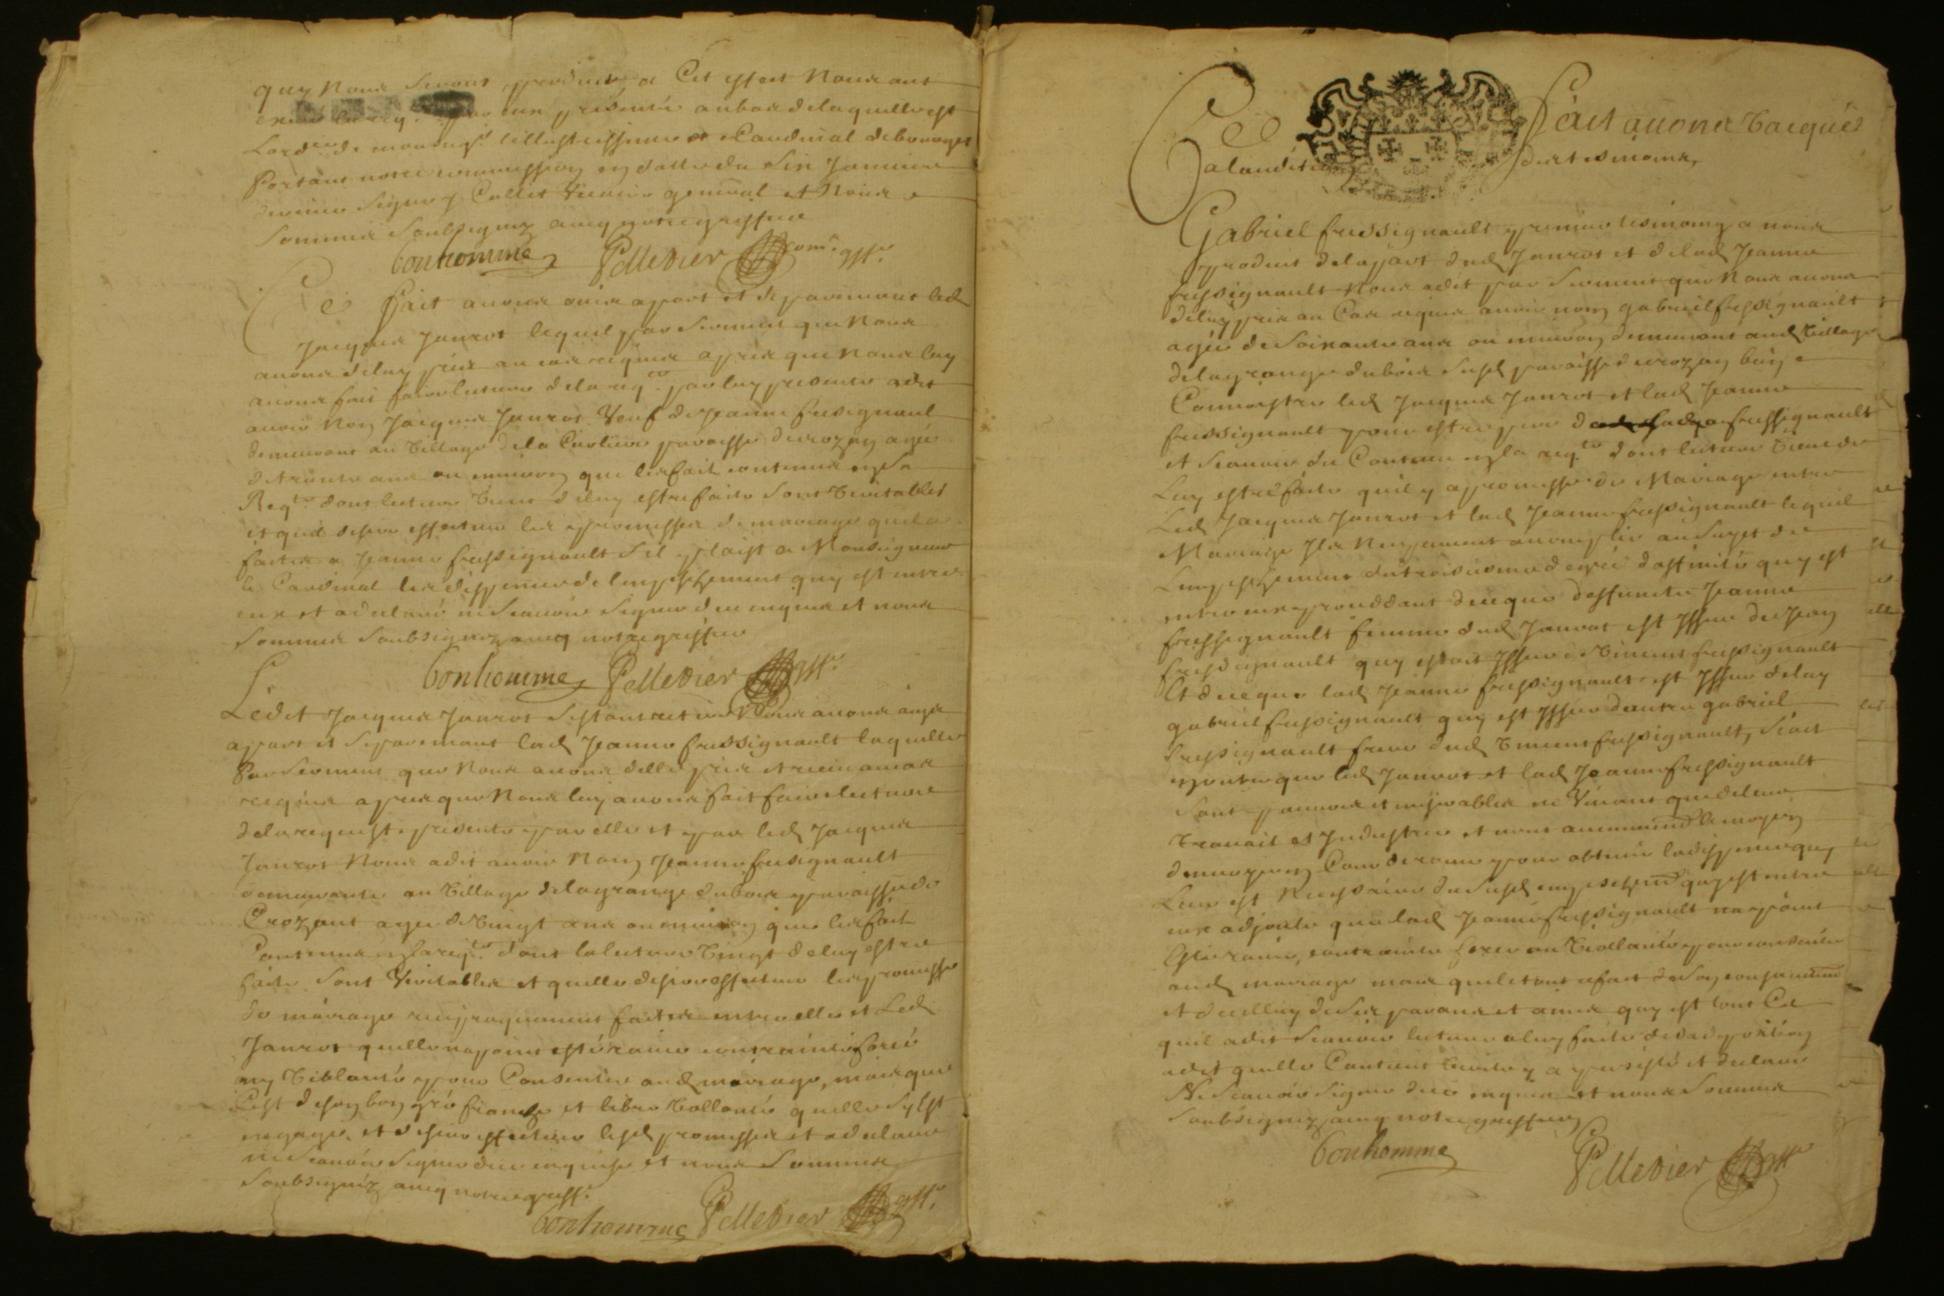 quy nous seront produits a Cet effect Nous ont
presentée au bas de laquelle est
Lord.re de monseig.r lillustrissime Cardinal
Portant notre commission en datte du six Januier
dernier Signé Collet Vicaire general et Nous
Sommes Soubsignez aueq notre greffier
Bonhomme Pelledier com.re gff.r
Ce Fait auons ouis apart et separemant led
Jacques Janrot lequel par serment que Nous
auons deluy pris au cas requis apres que Nous luy
auons fait faire lecture dela req.te par luy presentée adit
auoir Nom Jacques Janrot Veuf de Jeanne fressignault
demeurant au Village dela paroisse de crozan agé
de trante ans ou enuiron que les fait contenus en sa
Req.te dont lecture Vient deluy estre faite sont Veritables
et quil desire effectuer les promesses de mariage quil a
faites a Jeanne fressignault Sil plaist a Monseigneur
le Cardinal les dispenser de lempeschement quy est entre
eux et a declaré ne Scauoir Signer de ce enquis et nous
Sommes Soubsignez aueq notre greffier
Bonhomme Pelledier gff.r
Ledit Jacques Janrot sestant retiré Nous auons ouys
apart et separemant lad Jeanne fressignault laquelle
Par serment que Nous auons delle pris et receu au cas
requis apres que Nous luy auons fait faire lecture
dela requeste presentée par elle et par led Jacques
Janrot Nous adit auoir Nom Jeanne fressignault
demeurante au Village delagrange dubois paroisse de
Crozant agée de Vingt ans ou enuiron que les fait
Contenus en la req.te dont la lecture Vient deluy estre
faite sont Veritables et quelle desire effectuer les promesse
de mariage reciproquement faites entre elle et Led
Janrot quelle na point esté rauie contrainte forcé
ny Viollantée pour Consentir aud mariage, mais que
Cest de son bon gré franche et libre Vollonté quelle sy est
engagée et desire effectuer lesd promesses et a declaré
ne Scauoir Signer de ce enquise et nous Sommes
Soubsignez aueq notre greff.r
Bonhomme Pelledier gff.r
Ce Fait auons Vacqués
alaudition des tesmoins,
Gabriel fressignault premier tesmoing a nous
produit delapart dud Janrot et de lad Jeanne
fressignault Nous adit par serment que Nous auons
deluy pris au Cas requis auoir nom gabriel fressignault
agée de Soixante ans ou enuiron demeurant aud Village
delagrange dubois susd paroisse de crozan bien
Connoistre led Jacques Janrot et lad Jeanne
fressignault pour estre pere de lad fressignault
et Scauoir du Contenu en la req.te dont lecture Vient de
Luy estre faite quil y a promesse de Mariage entre
Led Jacques Janrot et lad Jeanne fressignault lequel
Mariage Ils Ne peuuent accomplir au Sujet de
Lempeschement du troisiesme degré daffinité quy est
entre eux proceddant de ce que deffuncte Jeanne
fressignault femme dud Janrot est Issue de Jean
fressignault quy estoit Issu de Vincent fressignault
Et de ce que lad Jeanne fressignault est Issue deluy
gabriel fressignault quy est Issu dautre gabriel
fressignault frere dud Vincent fressignault, Scait
en outre que led Janrot et lad Jeanne fressignault
Sont pauures et miserables ne Viuant que de leur
trauail et Industrie et nont aucunnement le moyen
denuoyer en Cour de rome pour obtenir la dispence quy
Leur est Necessaire du susd empeschem.t quy est entre
eux adjoute que lad Jeanne fressignault na point
Esté rauie, contrainte forcé ou Viollantée pour consentir
aud mariage mais que le tout a fait de son consentem.t
et de celluy de ses parans et amis quy est tout Ce
quil adit Scauoir lecture a luy faite de sa deposition
adit quelle Contient Verité y a persisté et declaré
Ne Scauoir Signer de ce enquis et nous Sommes
Soubsignez aueq notre greffier
Bonhomme Pelledier gff.r